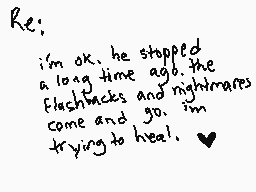 Re:
i'm ok. he stopped
a long time ago. the
flashbacks and nightmares
come and go. i'm
trying to heal. ♥